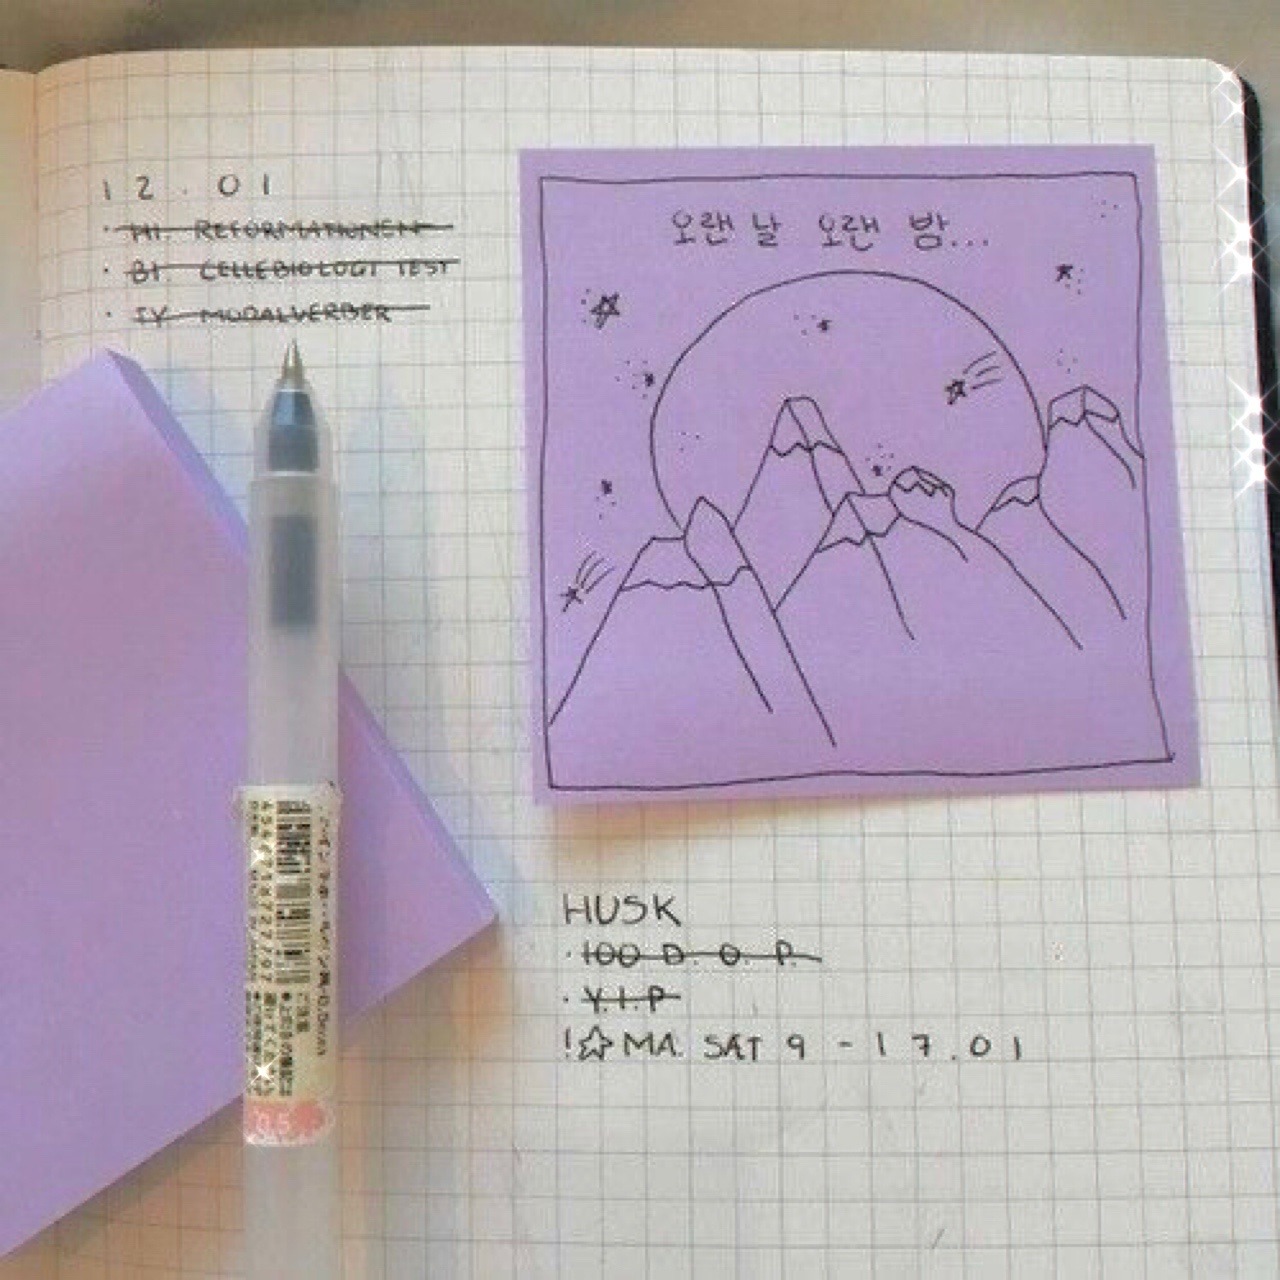 12.01
· HI. REFORMATIONEN
· BI. CELLEBIOLOGI TEST
· TY. MODALVERBER
오랜 날 오랜 밤...
HUSK
· 100 D. O. P.
· Y.I.P
!☆ MA. SÆT 9 - 17.01
0.5